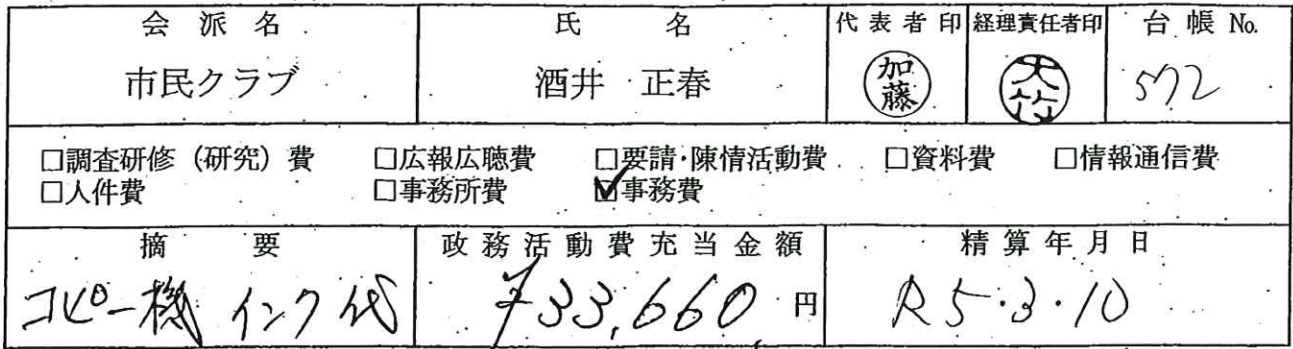 会派名 氏名 代表者印 経理責任者印 台帳 No.
市民クラブ 酒井 正春 加藤 大竹 572
□調査研修（研究）費 □広報広聴費 □要請・陳情活動費 □資料費 □情報通信費
□人件費 □事務所費 ☑事務費
摘要 政務活動費充当金額 精算年月日
コピー機 インク代 ¥33,660 円 R5.3.10